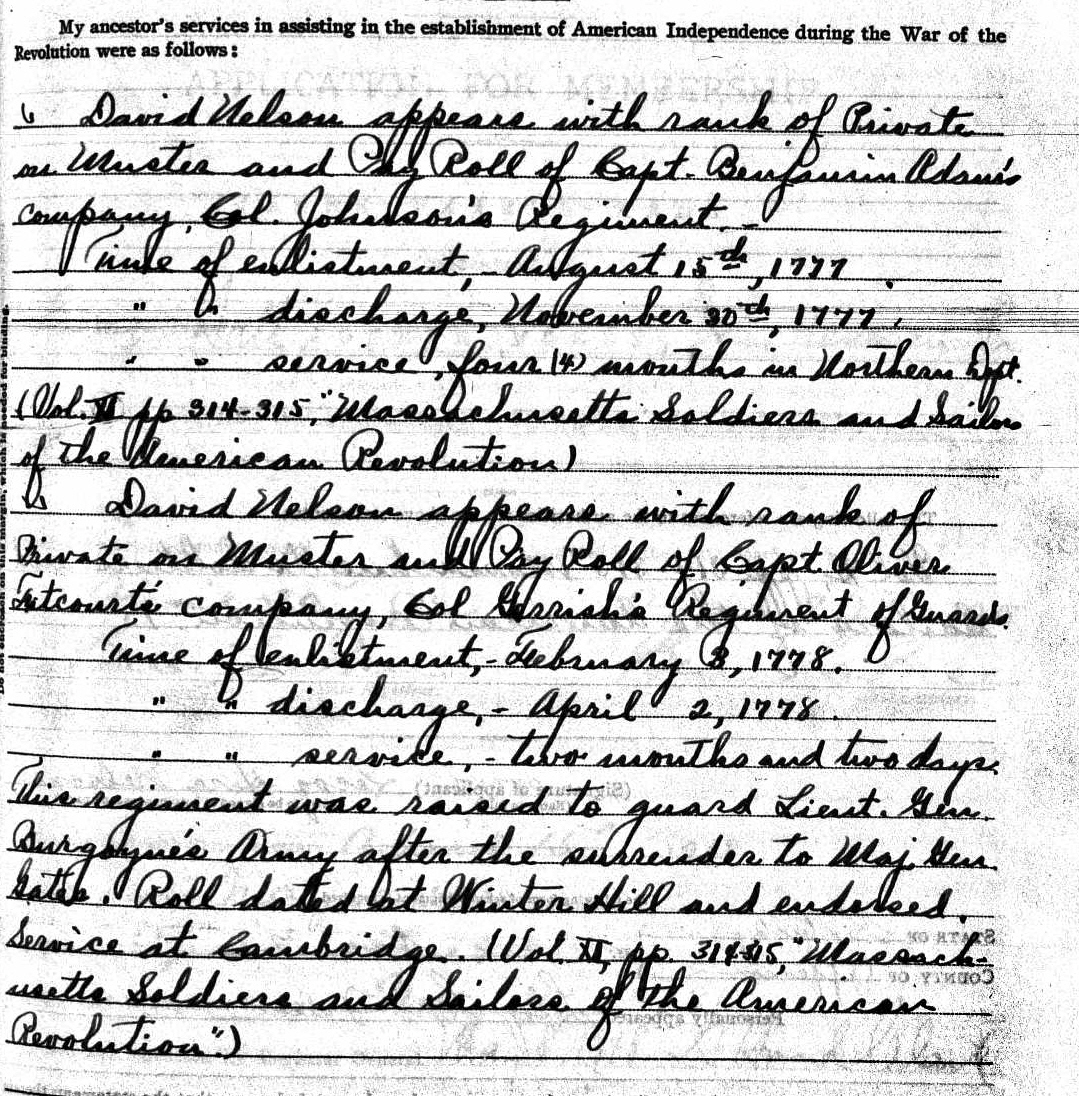 My ancestor's services in assisting in the establishment of American Independence during the War of the
Revolution were as follows:
David Nelson appears with rank of Private
on Muster and Pay Roll of Capt. Benjamin Adam's
company, Col. Johnson's Regiment.-
Time of enlistment,- August 15th, 1777.
" " discharge, November 30th, 1777.
" " service, four (4) months in Northern Dpt.
(Vol. XI pp 314-315, "Massachusetts Soldiers and Sailors
of the American Revolution)
David Nelson appears with rank of
Private on Muster and Pay Roll of Capt. Oliver
Titcourt's company, Col Gerrish's Regiment of Guards.
Time of enlistment,- February 3, 1778.
" " discharge,- April 2, 1778.
" " service,- two months and two days.
This regiment was raised to guard Lieut. Gen.
Burgoyne's Army after the surrender to Maj. Gen.
Gates. Roll dated at Winter Hill and endorsed,
Service at Cambridge. (Vol. XI, pp. 314-315, "Massach-
usetts Soldiers and Sailors of the American
Revolution".)